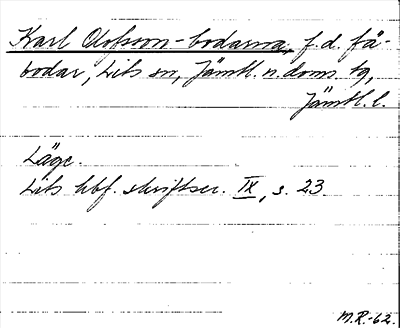 Karl Olofsson-bodarna, f.d. fä-
bodar, Lits sn, Jämtl. n. doms. tg,
Jämtl. l.
Läge.
Lits hbf. skriftser. IX, s. 23.
M.R.-62.